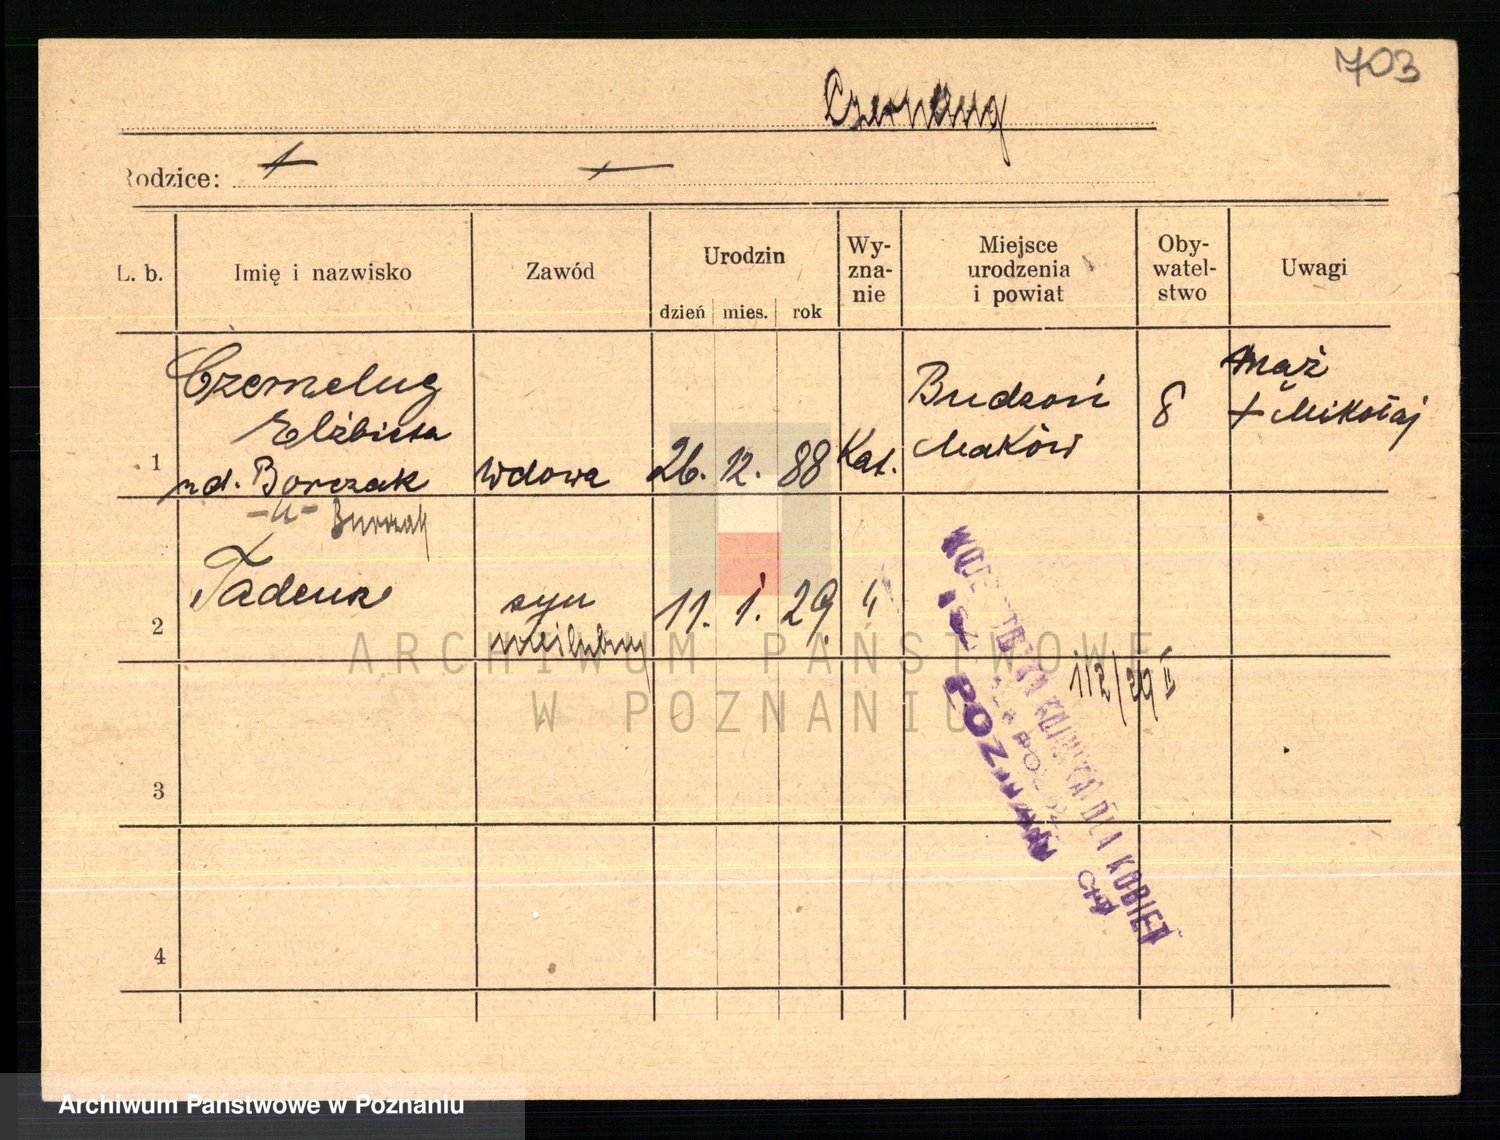 703
Rodzice:
L. b.
Imię i nazwisko
Zawód
Urodzin
dzień mies. rok
Wy-
zna-
nie
Miejsce
urodzenia
i powiat
Oby-
watel-
stwo
Uwagi
1
Czerneług
Elżbieta
zd. Borczak
Wdowa
26. 12. 88
Kat.
Budzoń
Maków
8
mąż
+ Mikołaj
-"-
2
Tadeusz
syn
11. 1. 29.
"
1/2/29 II
3
4
DLA KOBIET
POZNAŃ
ARCHIWUM PAŃSTWOWE
W POZNANIU
Archiwum Państwowe w Poznaniu